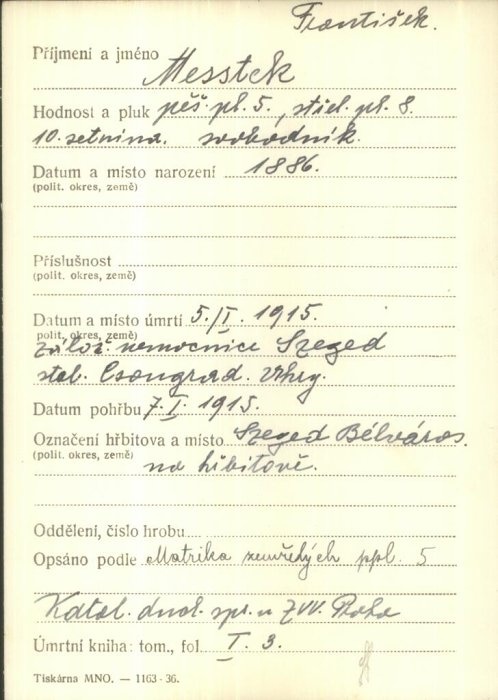 František.
Příjmení a jméno Messtek
Hodnost a pluk pěš. pl. 5., střel. pl. 8.
10. setnina. svobodník.
Datum a místo narození 1886.
(polit. okres, země)
Příslušnost
(polit. okres, země)
Datum a místo úmrtí 5./I. 1915.
(polit. okres, země)
zálož. nemocnice Szeged
stol. Csongrad. Uhry.
Datum pohřbu 7. I. 1915.
Označení hřbitova a místo Szeged Bélváros.
(polit. okres, země) na hřbitově.
Oddělení, číslo hrobu
Opsáno podle Matrika zemřelých ppl. 5
Katol. duch. spr. u ZVV. Praha
Úmrtní kniha: tom., fol. I. 3.
Tiskárna MNO. — 1163-36.